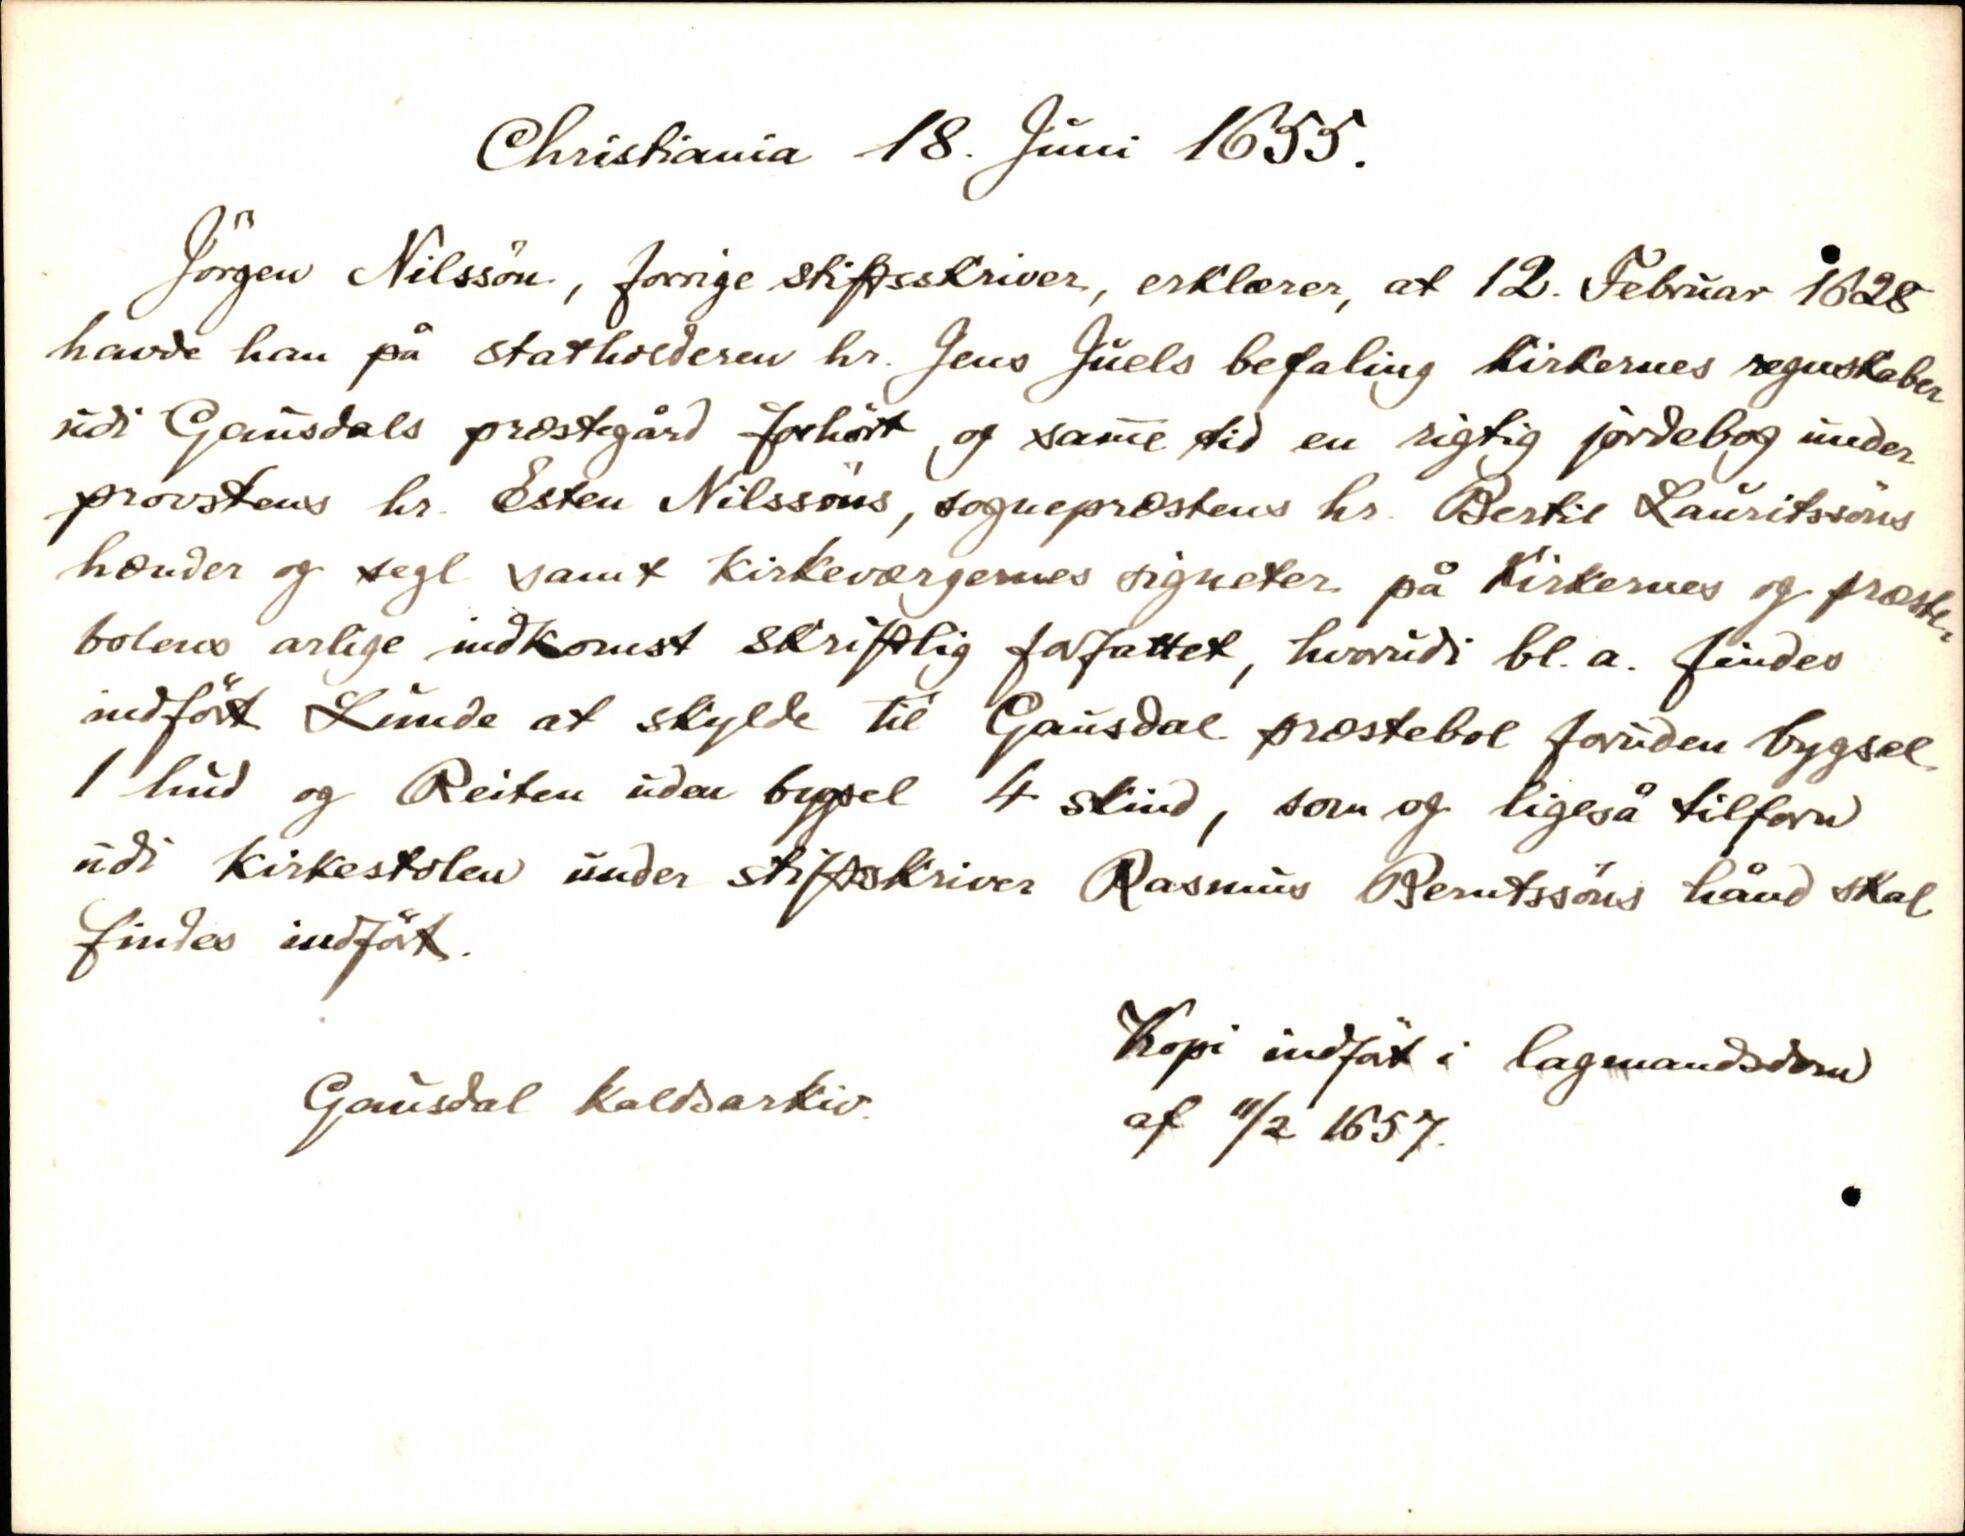 Christiania 18. Juni 1655.
Jörgen Nilssön, forrige stiftsskriver, erklærer, at 12. Februar 1628
havde han på statholderen hr. Jens Juels befaling kirkernes regnskaber
udi Gausdals præstegård forhört og sam̅e tid en rigtig jordebog under
provstens hr. Esten Nilssöns, sognepræstens hr. Bertil Lauritssöns
hænder og segl samt kirkeværgernes signeter på kirkernes og præste-
bolens arlige indkomst skriftlig forfattet, hvorudi bl. a. findes
indfört Lunde at skylde til Gausdal præstebol foruden bygsel
1 hud og Reiten uden bygsel 4 skind, som og ligeså tilforn
udi kirkestolen under stiftsskriver Rasmus Berntssöns hånd skal
findes indfört.
Kopi indfört i lagmandsdom
af 11/2 1657.
Gausdal kaldsarkiv.